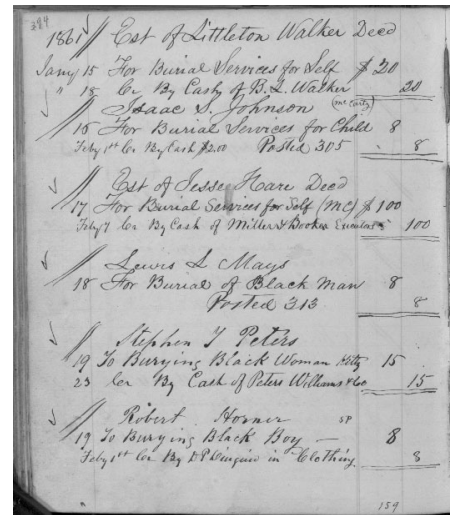 384
1861 Est of Littleton Walker Decd
Jany 15 For Burial Services for Self $20
" 18 Cr By Cash of B. L. Walker 20
Isaac S. Johnson (McCarty)
16 For Burial Services for Child 8
Feby 1st Cr By Cash $2.00 Posted 305 8
Est of Jesse Hare Decd
17 For Burial Services for Self (MC) $100
Feby 7 Cr By Cash of Miller & Booker 100
Lewis L Mays
18 For Burial of Black Man 8
Posted 313 8
Stephen T Peters
19 To Burying Black Woman Kitty 15
23 Cr By Cash of Peters Williams & Co 15
Robert Horner SP
19 To Burying Black Boy — 8
Feby 1st Cr By in Clothing 8
159